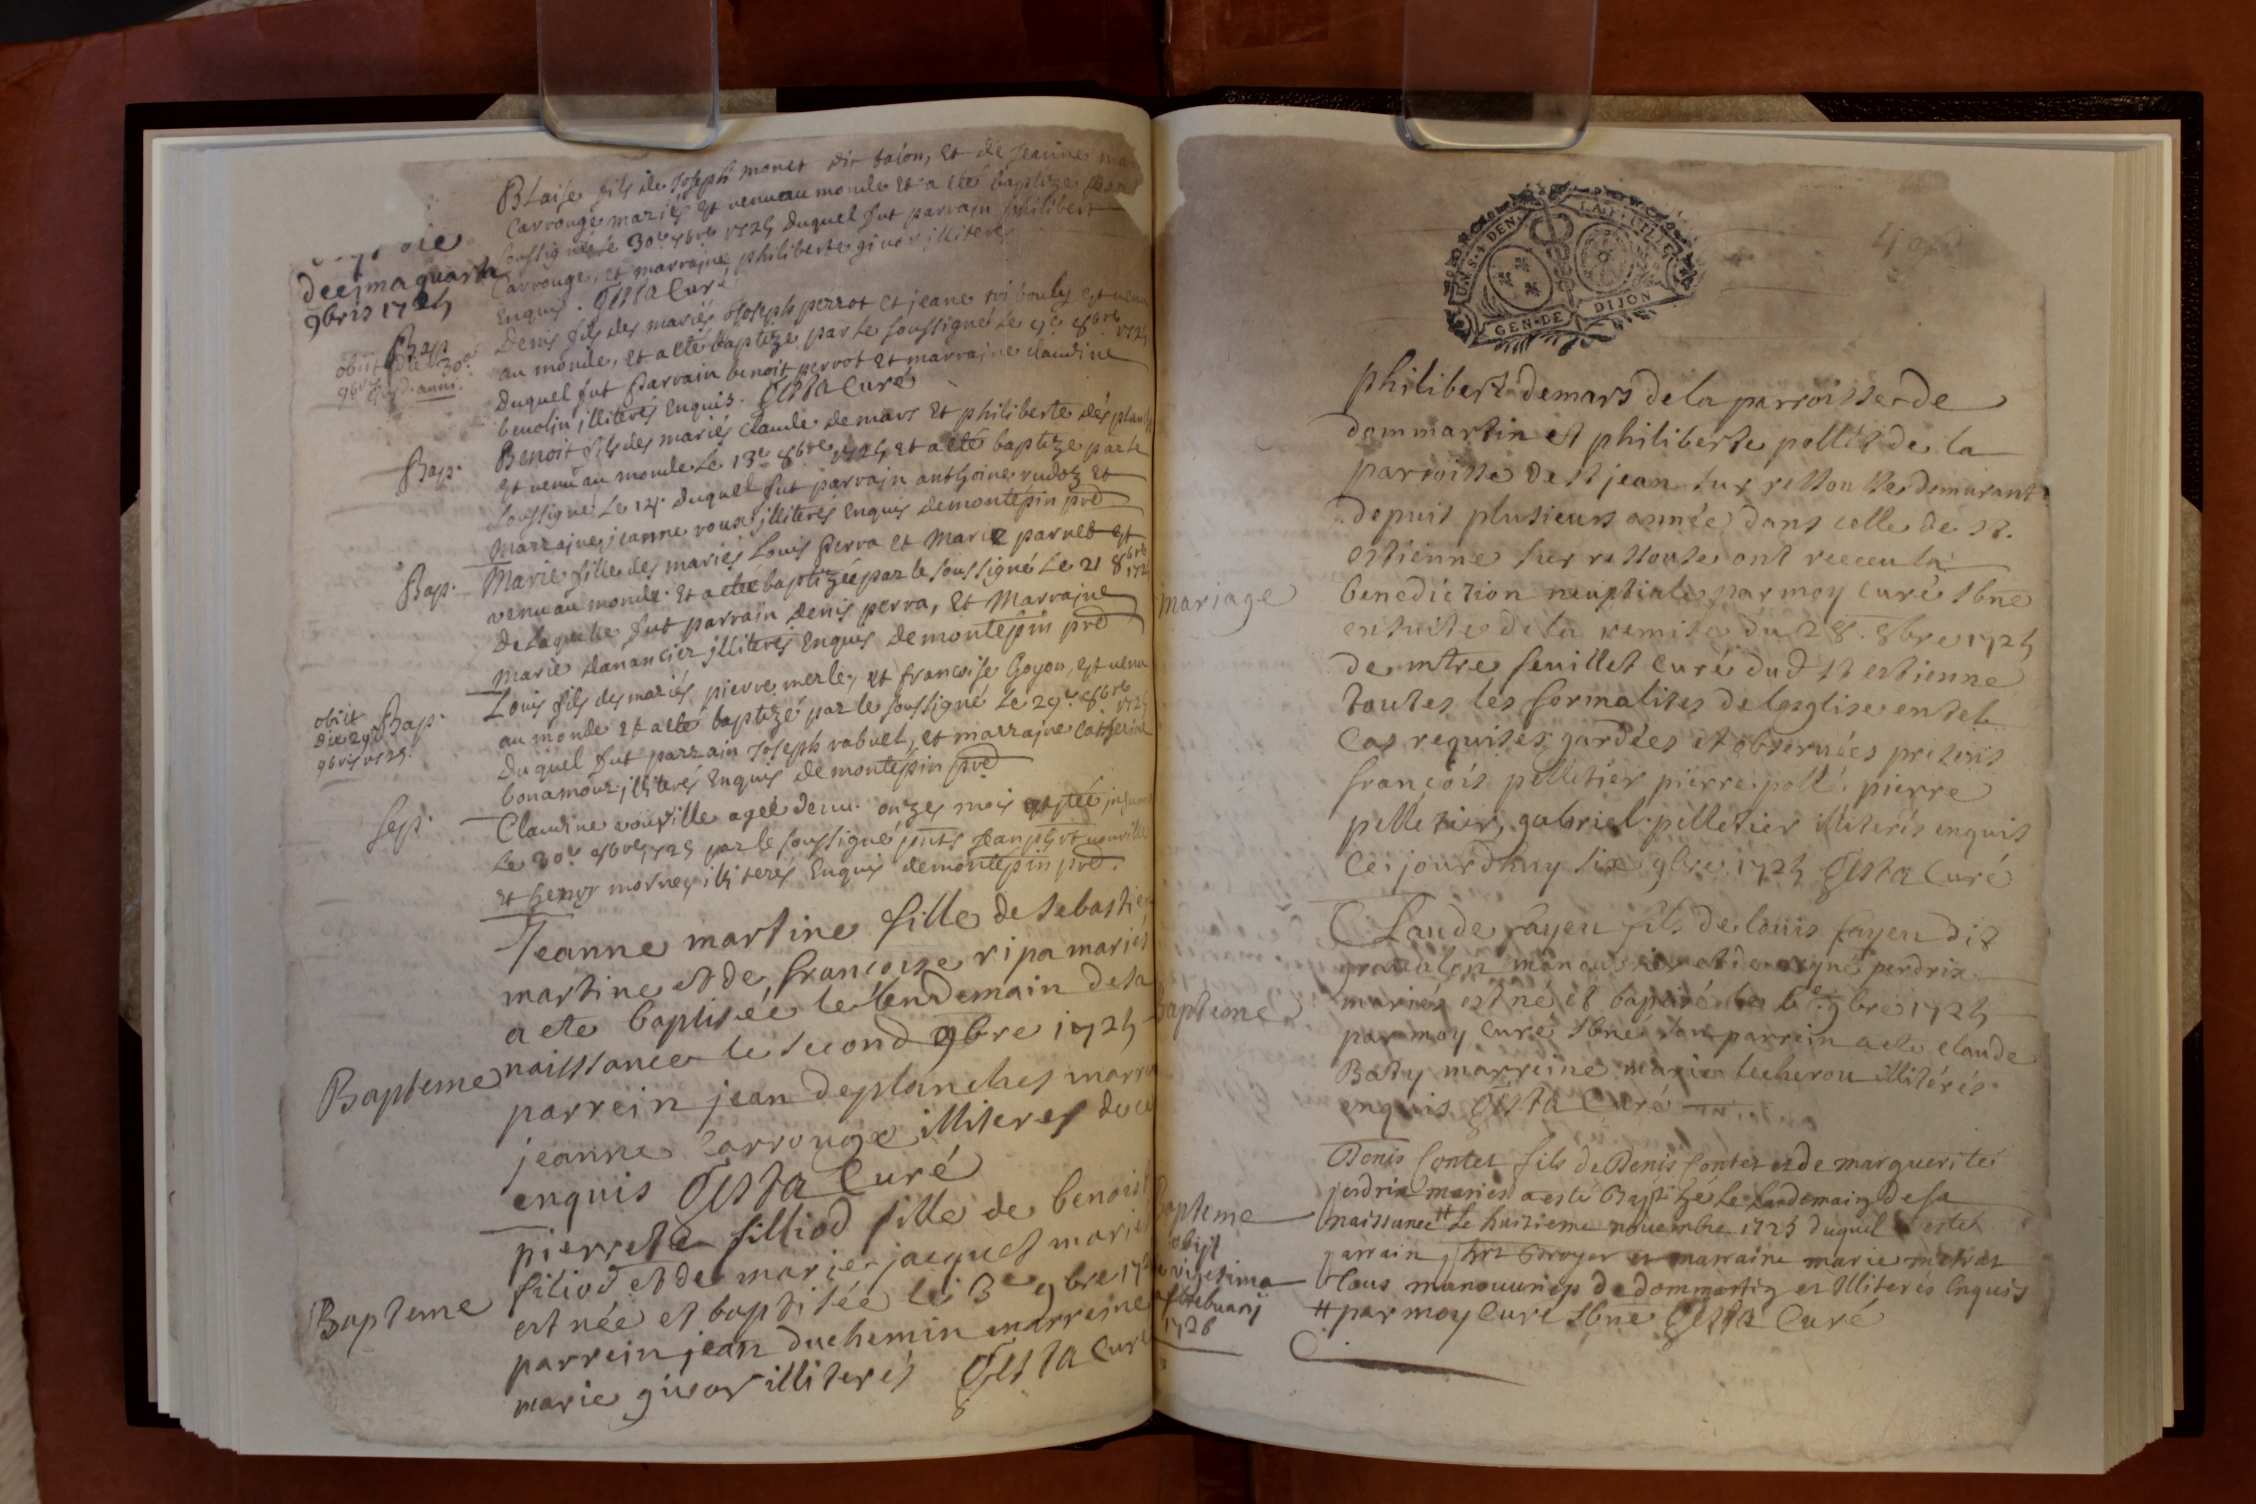 Blaise fils de Joseph monet dit talon, Et de Jeanne
Carrouge mariés Est venu au monde Et a eté baptizé par le
soussigné le 30e 7bre 1725 duquel fut parrain philibert
Carrouge, et marraine philiberte givor illiterés
Enquis. Gesta Curé
decima quarta
9bris 1725
Bap
obiit die 30a
9bris ejusd. anni.
Denis fils des mariés Joseph perrot et jeane tribouly est venu
au monde, Et a eté baptizé par le soussigné le 8bre 1725
Duquel fut Parrain benoit perrot Et marraine claudine
benolin illiterés Enquis. Gesta Curé
Bap.
Benoit fils des mariés Claude demars Et philiberte des planches
Est venu au monde le 13e 8bre 1725 Et a eté baptizé par le
soussigné Le 14. duquel fut parrain anthoine rudoz Et
Marraine jeanne roux illiterés Enquis demontepin pre
Bap.
Marie fille des mariés Louis perra Et Marie parnet est
venu au monde. Et a eté baptizée par le soussigné Le 21 8bre 1725
De laquelle fut parrain denis perra, Et Marraine
Marie danancier illiterés Enquis demontepin pre
obiit
die 29
9bris 1725.
Bap.
Louis fils des mariés pierre merle, et francoise Goyon, est venu
au monde Et a eté baptizé par le soussigné Le 29e 8bre 1725
Duquel fut parrain Joseph rabuel, et marraine Catherine
bonamour illiterés Enquis demontepin pre
Sep.
Claudine vouville ageé de onzes mois inhumé
Le 30e 8bre 1725 par le soussigné pnts Jean vouville
Et henry mornay illiterés Enquis demontepin pre.
Jeanne martine fille de sebastien
martine et de francoise ripa mariés
a ete baptisée le lendemain de sa
Bapteme
naissance le second 9bre 1725
parrein jean deplanches marreine
jeanne Carrouge illiteres de ce
enquis Gesta Curé
pierrete filliod fille de benoist
filiod et de marie jacquet mariés
Bapteme
est née et baptisée le 3e 9bre 1725
parrein jean duchemin marreine
marie givor illiterés Gesta Curé
GEN. DE DIJON
philibert demars de la parroisse de
dommartin et philiberte pollet de la
parroisse de st jean sur ressousse demurant
depuis plusieurs année dans celle de st.
estienne sur ressouse ont receu la
mariage
benediction nuptiale par moy curé sbne
ensuite de la remise du 28. 8bre 1725
de mtre feuillet curé dud st estienne
toutes les formalites de lesglise en tel
Cas requises gardées et observées presens
françois pelletier pierre pollé. pierre
pelletier, gabriel pelletier illiterés enquis
Ce jourdhuy six 9bre 1725 Gesta Curé
Claude fayen fils de louis fayen dit
gravalon manouvrier et de reyne perdrix
Bapteme
mariés est né et baptisé le 6e 9bre 1725
par moy curé sbne son parrein a ete claude
Bady marreine marie lecherou illitérés
enquis Gesta Curé
Denis Contet fils de Denis Contet et de marguerite
perdrix mariés a esté Baptizé le Landemain de sa
Bapteme
naissance # Le huitieme novembre 1725 duquel a esté
parrain phrt Broyer et marraine marie metrat
obijt
vigesima
februarij
1728
tous manouvriers de dommartin et Illiterés Enquis
# par moy Curé sbne Gesta Curé